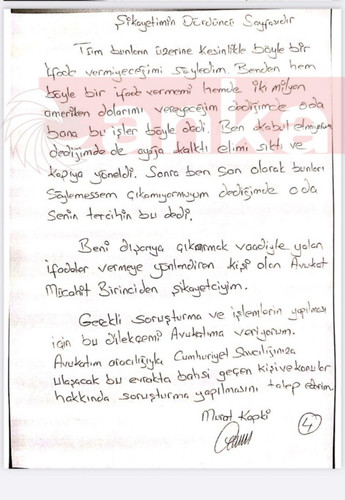 Şikayetimin Dördüncü Sayfasıdır
Tüm bunların üzerine kesinlikle böyle bir
ifade vermiyeceğimi söyledim. Benden hem
böyle bir ifade vermemi hemde iki milyon
amerikan dolarımı vereyeceğim dediğimde oda
bana bu işler böyle dedi. Ben kabul olmuyorum
dediğimde de ayağa kalktı elimi sıktı ve
kapıya yöneldi. Sonra ben son olarak bunları
Söylemessem çıkamıyormuyum dediğimde oda
Senin tercihin bu dedi.
Beni dışarıya çıkarmak vaadiyle yalan
ifadeler vermeye yönlendiren kişi olan Avukat
Mücahit Birinciden şikayetçiyim.
Gerekli soruşturma ve işlemlerin yapılması
için bu dilekçemi Avukatıma veriyorum.
Avukatım aracılığıyla Cumhuriyet Savcılığınıza
ulaşacak bu evrakta bahsi geçen kişi ve konular
hakkında soruşturma yapılmasını talep ederim
Murat Kapki
4
anka